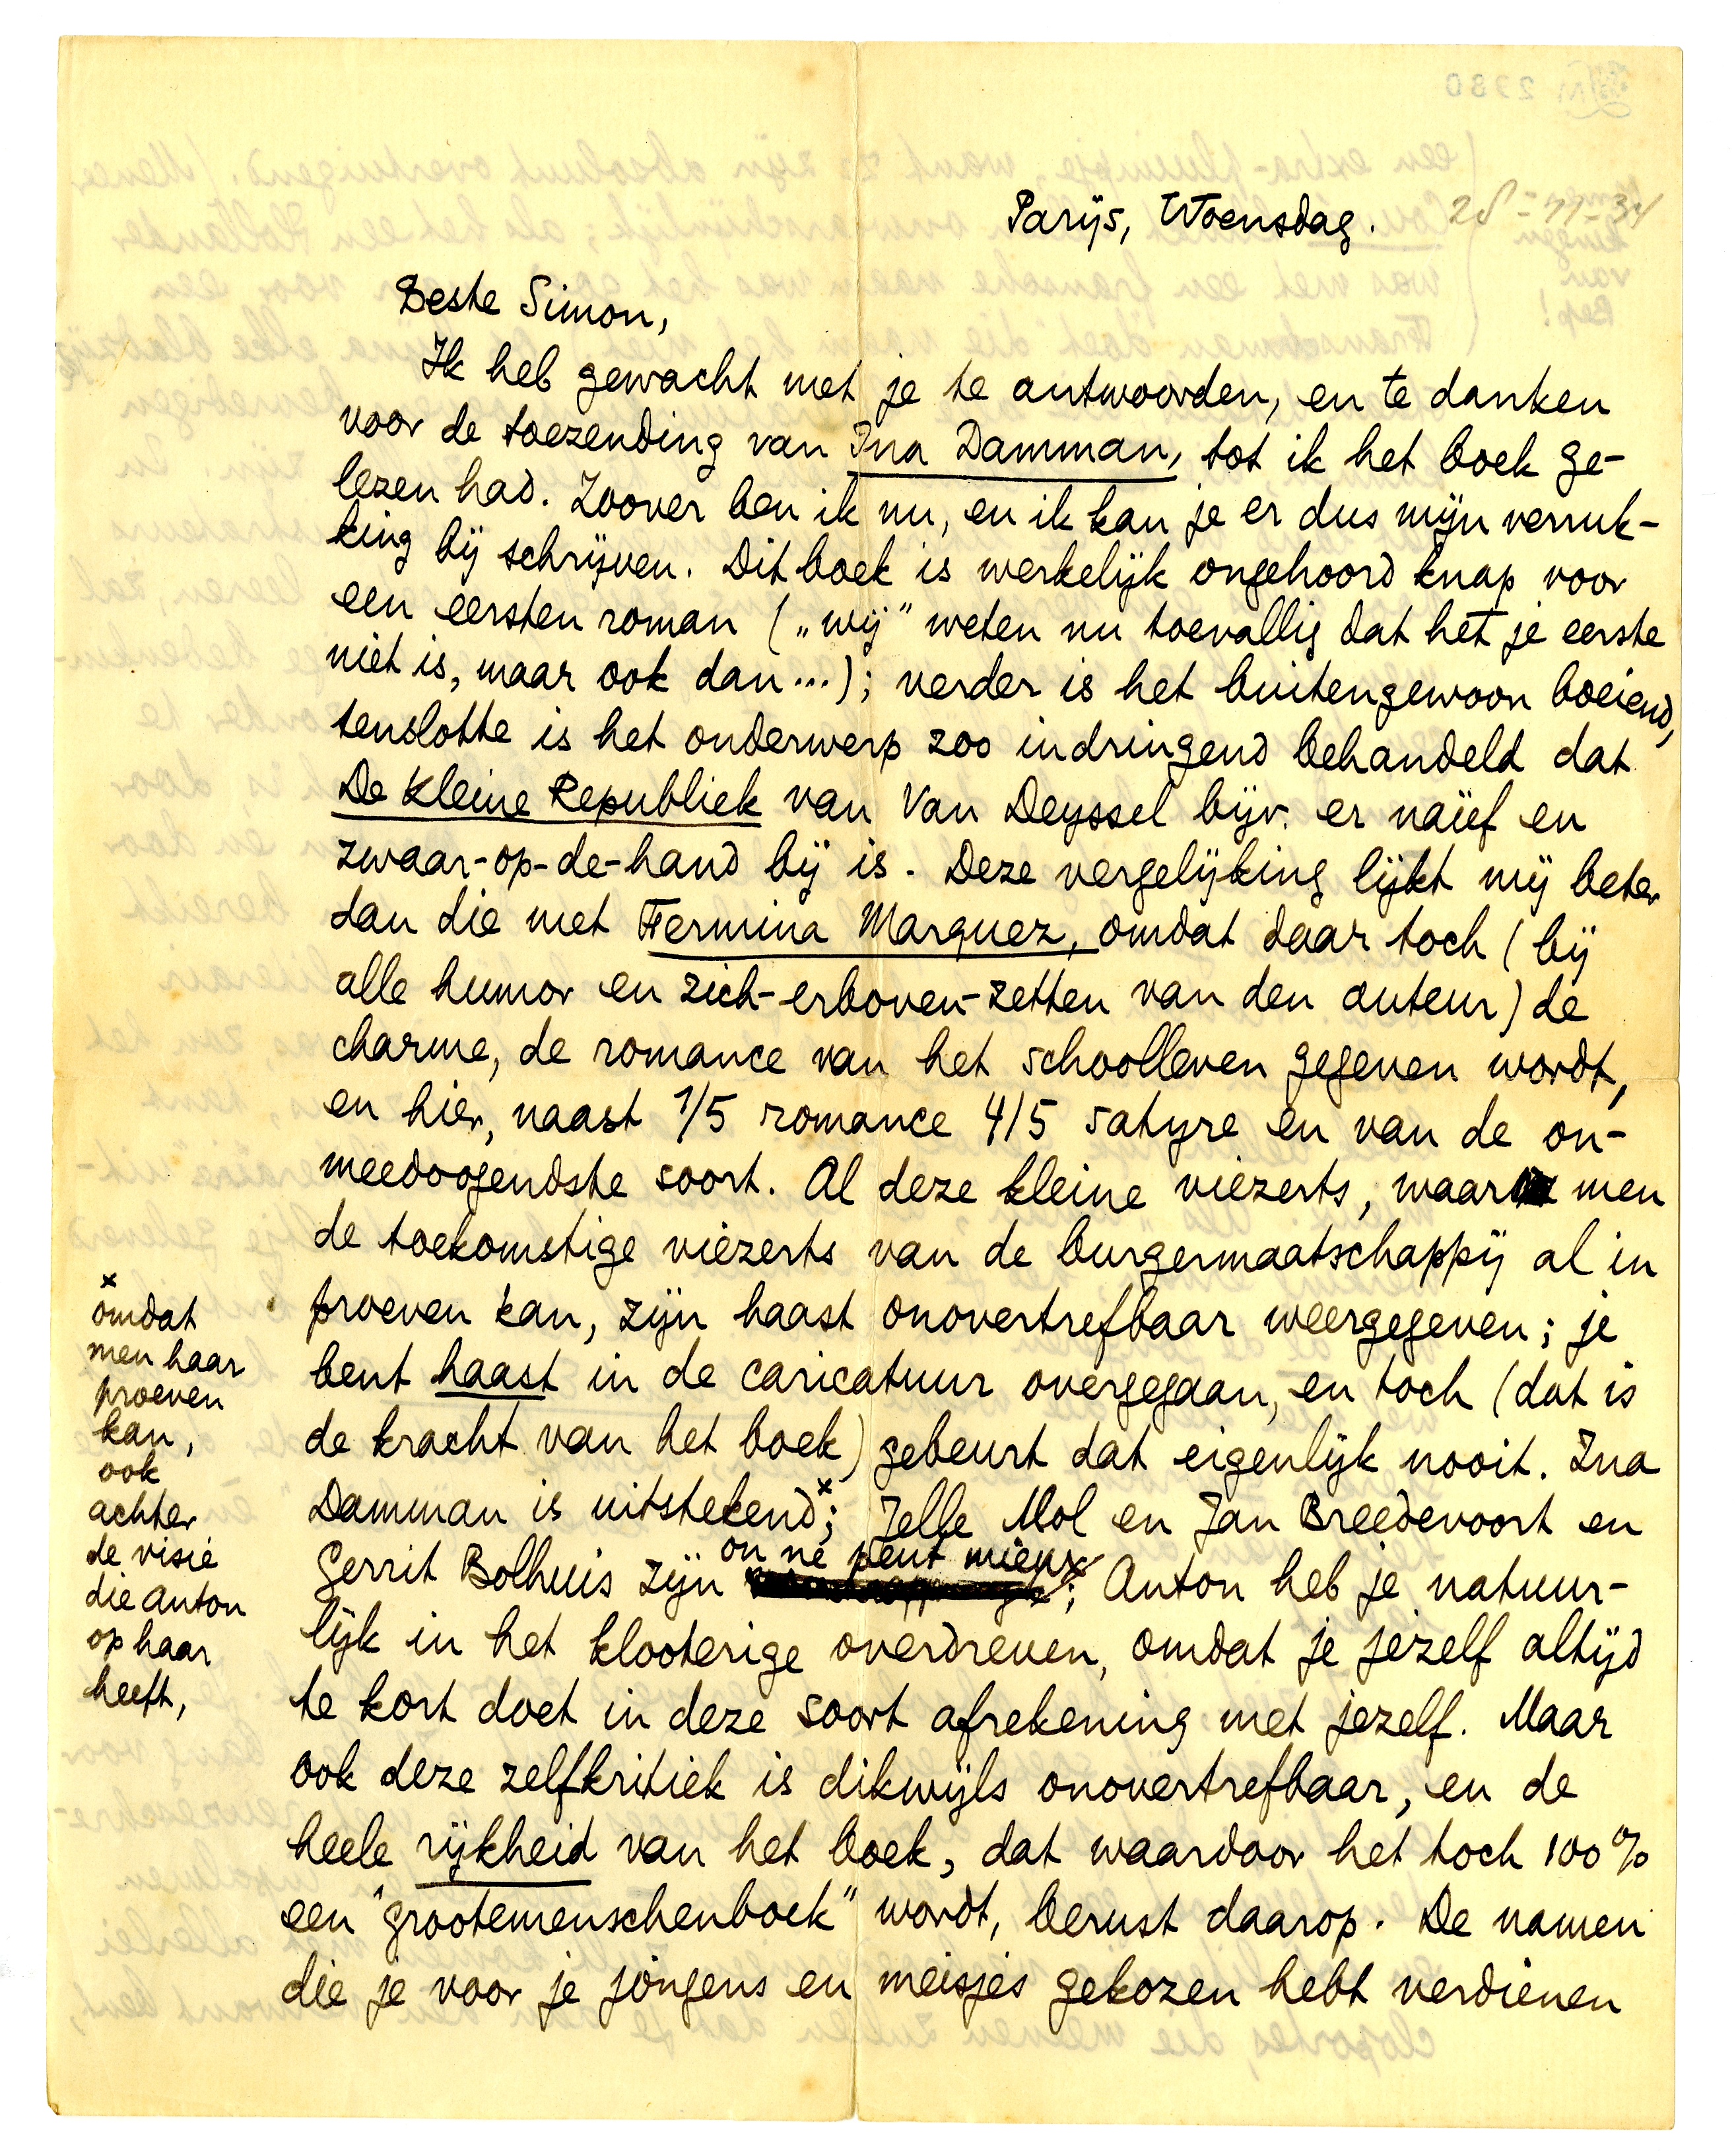 Parijs, Woensdag. 28-11-34
Beste Simon,
Ik heb gewacht met je te antwoorden, en te danken
voor de toezending van Ina Damman, tot ik het boek ge-
lezen had. Zoover ben ik nu, en ik kan je er dus mijn verruk-
king bij schrijven. Dit boek is werkelijk ongehoord knap voor
een eersten roman („wij” weten nu toevallig dat het je eerste
niet is, maar ook dan...); verder is het buitengewoon boeiend,
tenslotte is het onderwerp zoo indringend behandeld dat
De kleine Republiek van Van Deyssel bijv. er naïef en
zwaar-op-de-hand bij is. Deze vergelijking lijkt mij beter
dan die met Fermina Marquez, omdat daar toch (bij
alle humor en zich-erboven-zetten van den auteur) de
charme, de romance van het schoolleven gegeven wordt,
en hier, naast 1/5 romance 4/5 satyre en van de on-
meedoogendste soort. Al deze kleine viezerts, waar men
de toekomstige viezerts van de burgermaatschappij al in
proeven kan, zijn haast onovertrefbaar weergegeven; je
bent haast in de caricatuur overgegaan, en toch (dat is
de kracht van het boek) gebeurt dat eigenlijk nooit. Ina
Damman is uitstekend×; Jelle Mol en Jan Breedevoort en
Gerrit Bolhuis zijn on ne peut mieux; Anton heb je natuur-
lijk in het klooterige overdreven, omdat je jezelf altijd
te kort doet in deze soort afrekening met jezelf. Maar
ook deze zelfkritiek is dikwijls onovertrefbaar, en de
heele rijkheid van het boek, dat waardoor het toch 100%
een "grootemenschenboek" wordt, berust daarop. De namen
die je voor je jongens en meisjes gekozen hebt verdienen
×
omdat
men haar
proeven
kan,
ook
achter
de visie
die Anton
op haar
heeft,